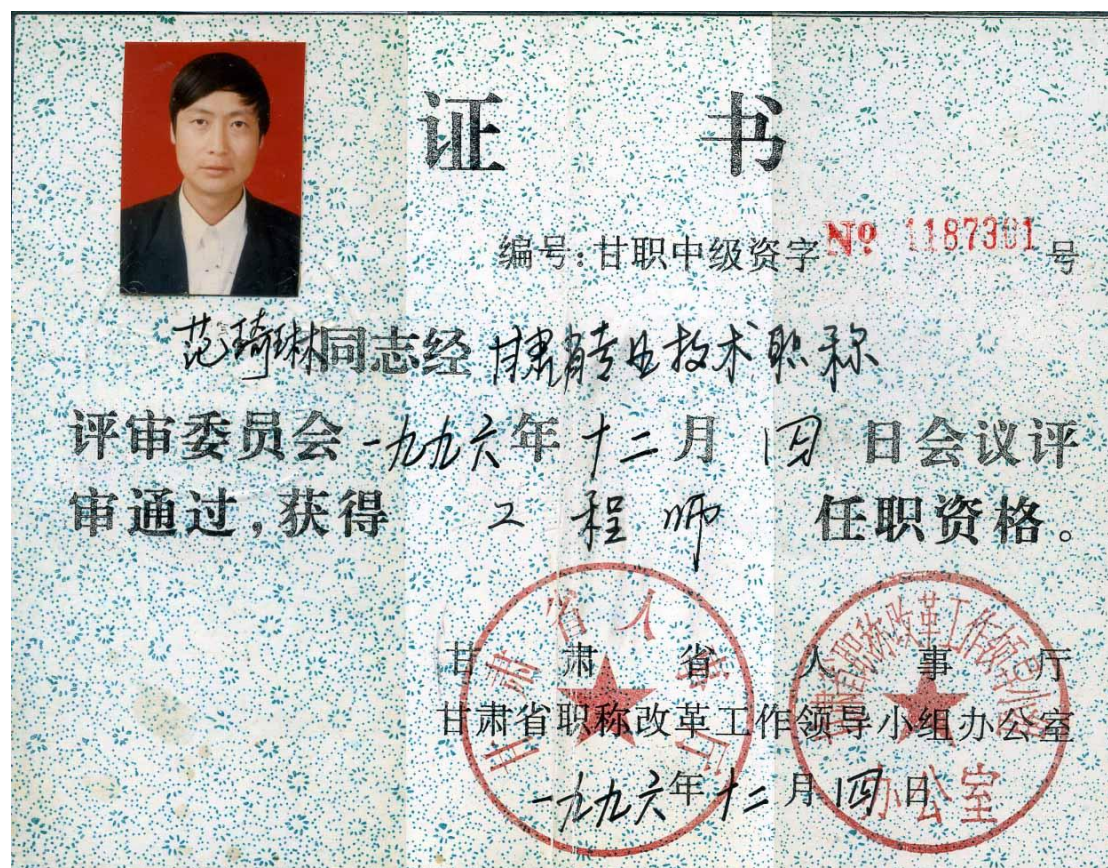 证书
编号:甘职中级资字 Nº 1187301 号
范琦琳同志经 甘肃省专业技术职称
评审委员会 一九九六年 十二月 四日会议评
审通过,获得 工程师 任职资格。
甘肃省人事厅
甘肃省职称改革工作领导小组办公室
一九九六年十二月四日
甘肃省人事厅
甘肃省职称改革工作领导小组
办公室